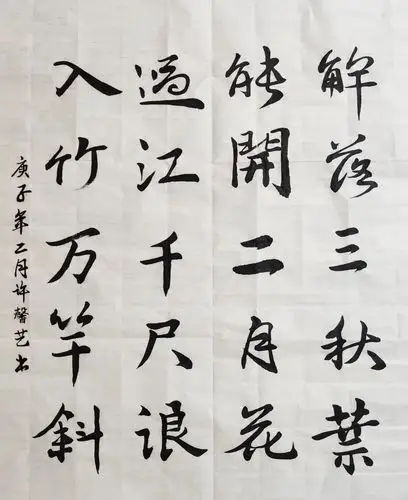 解落三秋葉
能開二月花
過江千尺浪
入竹万竿斜
庚子年二月许馨艺书